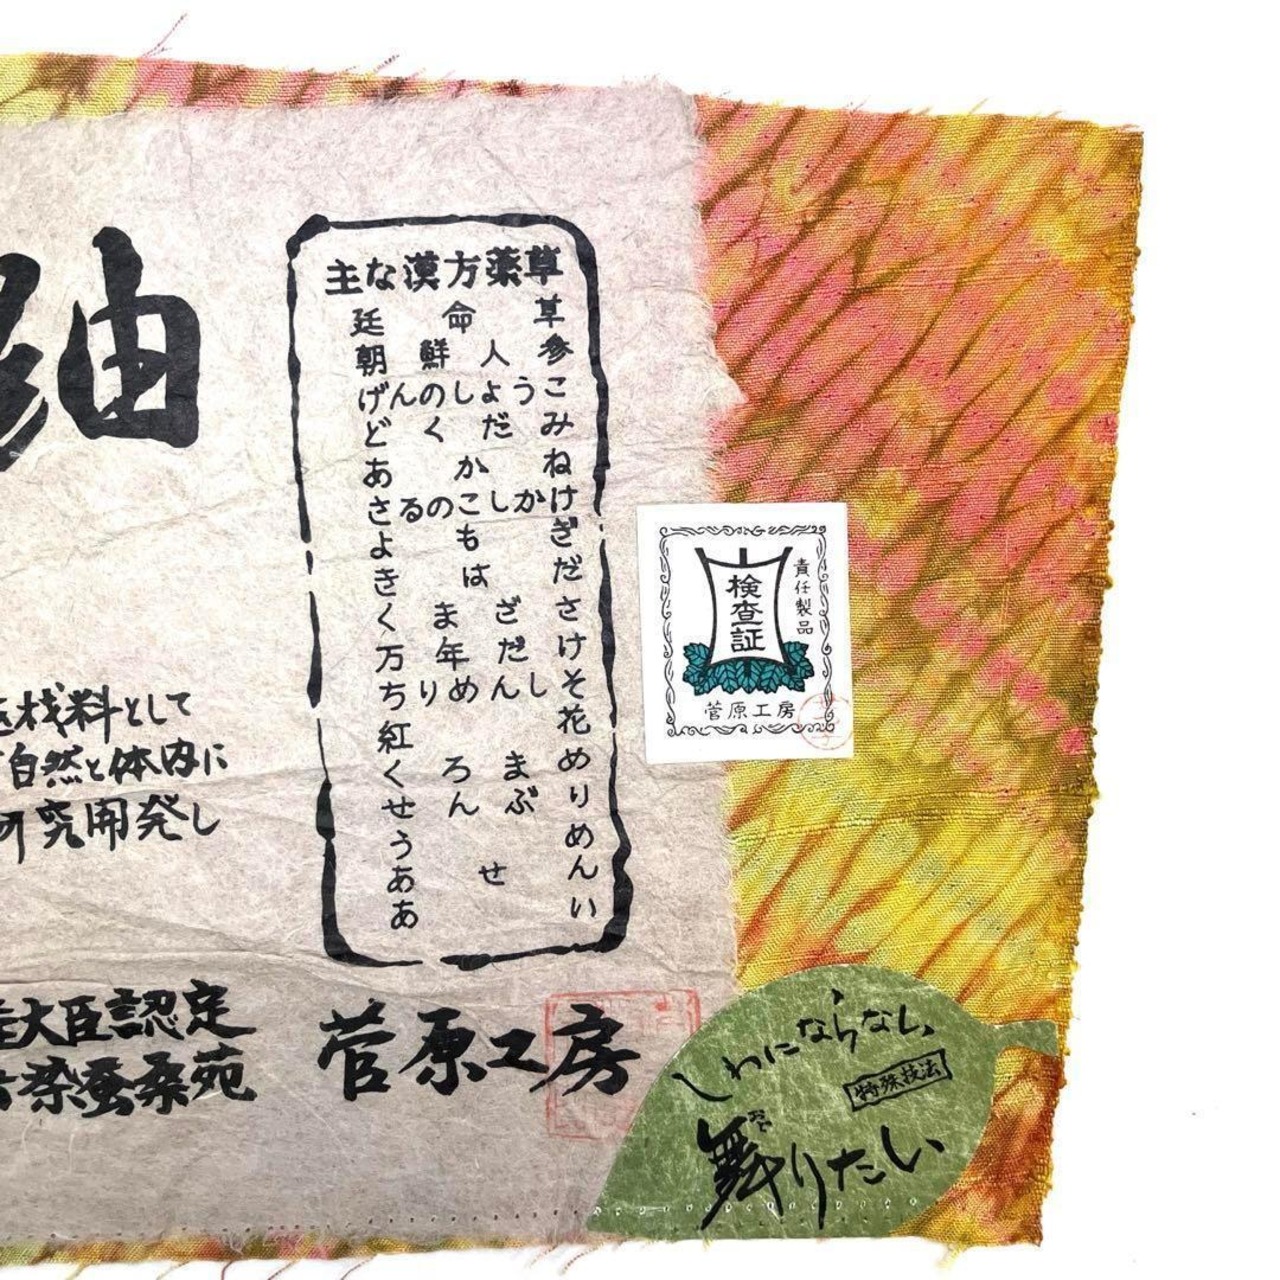 紬
主な漢方薬草
廷命草
朝鮮人参
げんのしようこ
どくだみ
あかね
さるのこしかけ
よもぎ
きはだ
くまざさ
万年だけ
ちりめんしそ
紅花
くろまめ
せんぶり
うめ
あせん
あい
材料として
自然と体内に
研究開発し
大臣認定
染蚕桑苑
菅原工房
責任製品
検査証
菅原工房
しわにならない
特殊技法
おど
舞りたい